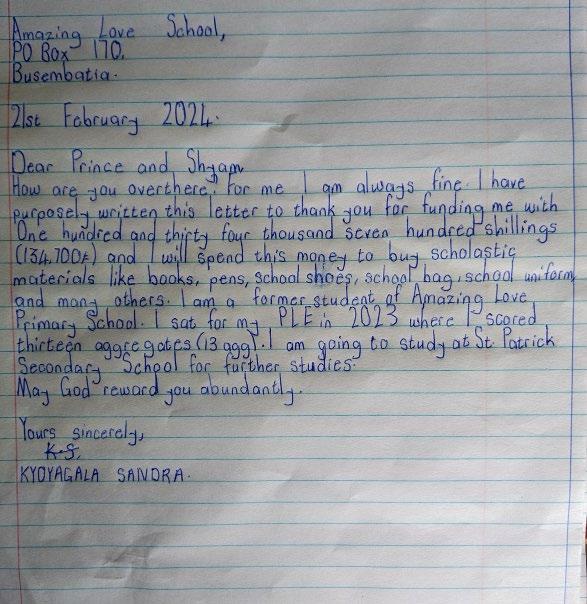 Amazing Love School,
PO Box 170,
Busembatia.
21st February 2024.
Dear Prince and Shyam
How are you overthere? For me I am always fine. I have
purposely written this letter to thank you for funding me with
One hundred and thirty four thousand seven hundred shillings
(134,700/=) and I will spend this money to buy scholastic
materials like books, pens, school shoes, school bag, school uniform
and many others. I am a former student of Amazing Love
Primary School. I sat for my PLE in 2023 where I scored
thirteen aggregates (13 agg). I am going to study at St Patrick
Secondary School for further studies.
May God reward you abundantly.
Yours sincerely,
K.S.
KYOYAGALA SANDRA.